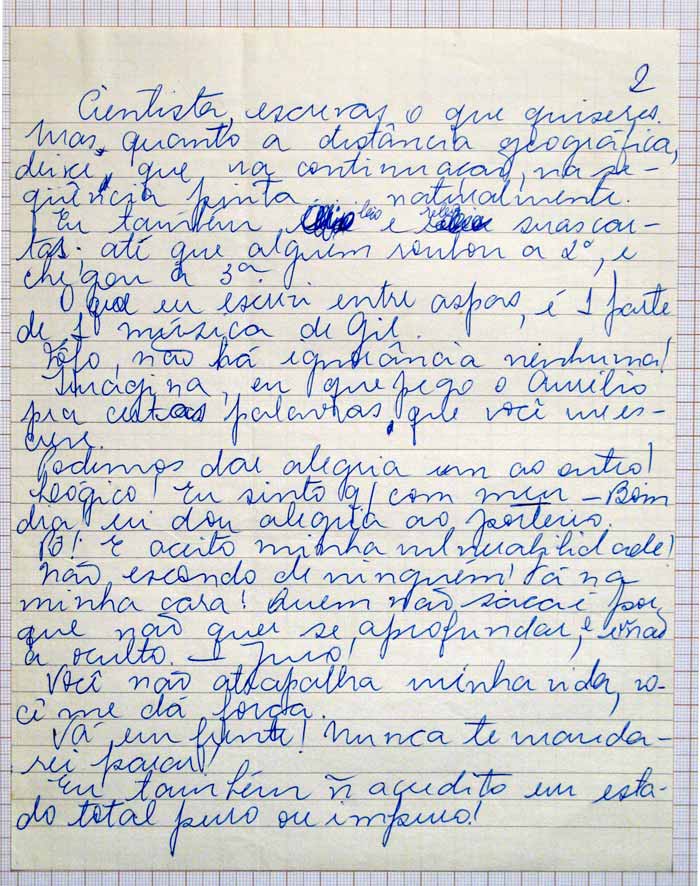 2
Cientista, escrevas o que quiseres.
Mas, quanto a distância geográfica,
deixe, que na continuacao, na se-
qüência pinta ... naturalmente.
Eu também leio e suas car-
tas; até que alguém roubou a 2ª, e
chegou a 3ª.
O que eu escrevi entre aspas, é 1 parte
de 1 música de Gil.
não há ignorância nenhuma!
Imagina, eu que pego o Aurélio
pra certas palavras, que você me es-
creve.
Podemos dar alegria um ao outro!
Lógico! Eu sinto q/ com meu - Bom
dia eu dou alegria ao porteiro.
Pô! E aceito minha vulnerabilidade!
não escondo de ninguém! Tá na
minha cara! Quem não saca é por
que não quer se aprofundar, e
é oculto. - Juro!
Você não atrapalha minha vida, vo-
cê me dá força.
Vá em frente! Nunca te manda-
rei parar!
Eu também ñ acredito em esta-
do total puro ou impuro!